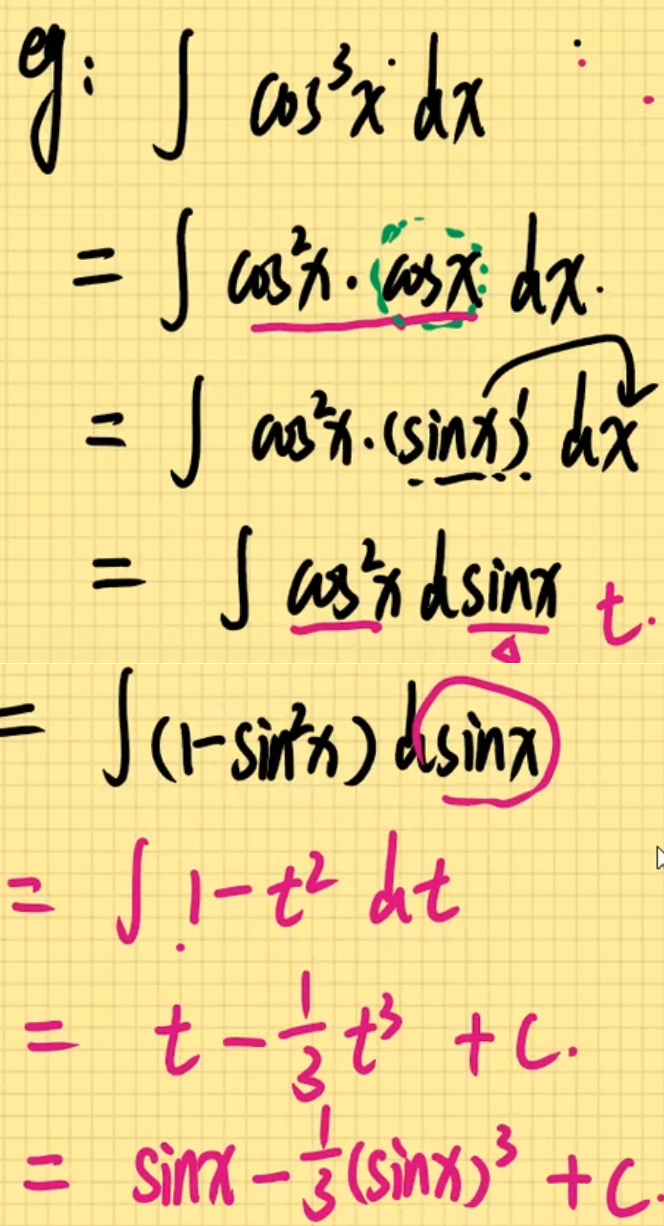 eg: ∫ cos³x dx
= ∫ cos²x · cosx dx.
= ∫ cos²x · (sinx)' dx
= ∫ cos²x dsinx t.
= ∫ (1-sin²x) dsinx
= ∫ 1-t² dt
= t - 1/3 t³ + C.
= sinx - 1/3 (sinx)³ + C.